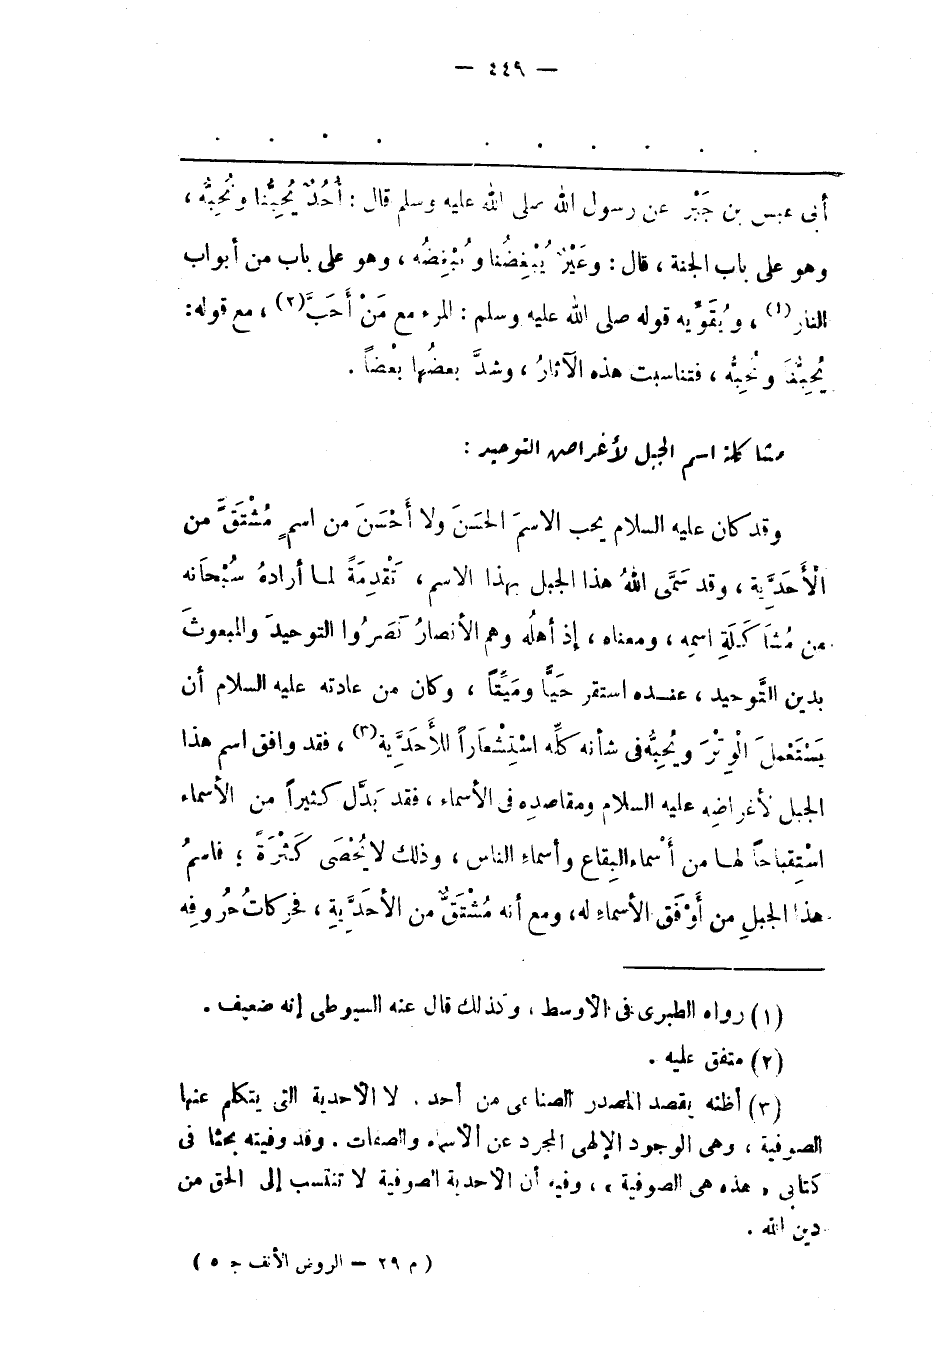 — ٤٤٩ —
أبى عبس بن جَبْر عن رسول الله صلى الله عليه وسلم قال : أُحُدٌ يُحِبُّنا ونُحِبُّه ،
وهو على باب الجنة ، قال : وعَيْرٌ يُبْغِضُنا ونُبْغِضُه ، وهو على باب من أبواب
النار(١) ، ويُقَوِّيه قوله صلى الله عليه وسلم : المرء مع مَنْ أَحَبَّ(٢) ، مع قوله:
يُحِبُّنَا ونُحِبُّه ، فتناسبت هذه الآثارُ ، وشدَّ بعضُها بعْضاً .
مشاكلة اسم الجبل لأغراض التوحيد :
وقد كان عليه السلام يحب الاسمَ الحَسَنَ ولا أَحْسَنَ من اسمٍ مُشْتَقٍّ من
الْأَحَدِيَّة ، وقد سَمَّى اللهُ هذا الجبل بهذا الاسم ، تَقْدِمَةً لما أرادهُ سُبْحَانه
من مُشَاكَلَةِ اسمِه ، ومعناه ، إذ أهلُه وهم الأنصارُ نَصَرُوا التوحيدَ والمبعوثَ
بدين التَّوحيد ، عنده استقر حَيًّا ومَيِّتاً ، وكان من عادته عليه السلام أن
يَسْتَعْمِلَ الْوِتْرَ ويُحِبُّه فى شأنه كلِّه اسْتِشْعَاراً للأَحَدِيَّة(٣) ، فقد وافق اسم هذا
الجبل لأغراضِه عليه السلام ومقاصدِه فى الأسماء ، فقد بَدَّل كثيراً من الأسماء
اسْتِقباحاً لها من أَسْماء البِقاع وأسماء الناس ، وذلك لا يُحْصَى كَثْرَةً ؛ فاسمُ
هذا الجبلِ من أَوْفَقِ الأسماء له، ومع أنه مُشْتَقٌّ من الأحَدِيَّةِ ، فحركاتُ حُرُوفِه
(١) رواه الطبرى فى الأوسط ، وكذلك قال عنه السيوطى إنه ضعيف .
(٢) متفق عليه .
(٣) أظنه يقصد المصدر الصناعى من أحد . لا الأحدية التى يتكلم عنها
الصوفية ، وهى الوجود الإلهى المجرد عن الأسماء والصفات . وقد وفيته بحثا فى
كتابى « هذه هى الصوفية » ، وفيه أن الأحدية الصوفية لا تنتسب إلى الحق من
دين الله .
( م ٢٩ — الروض الأنف ج ٥ )